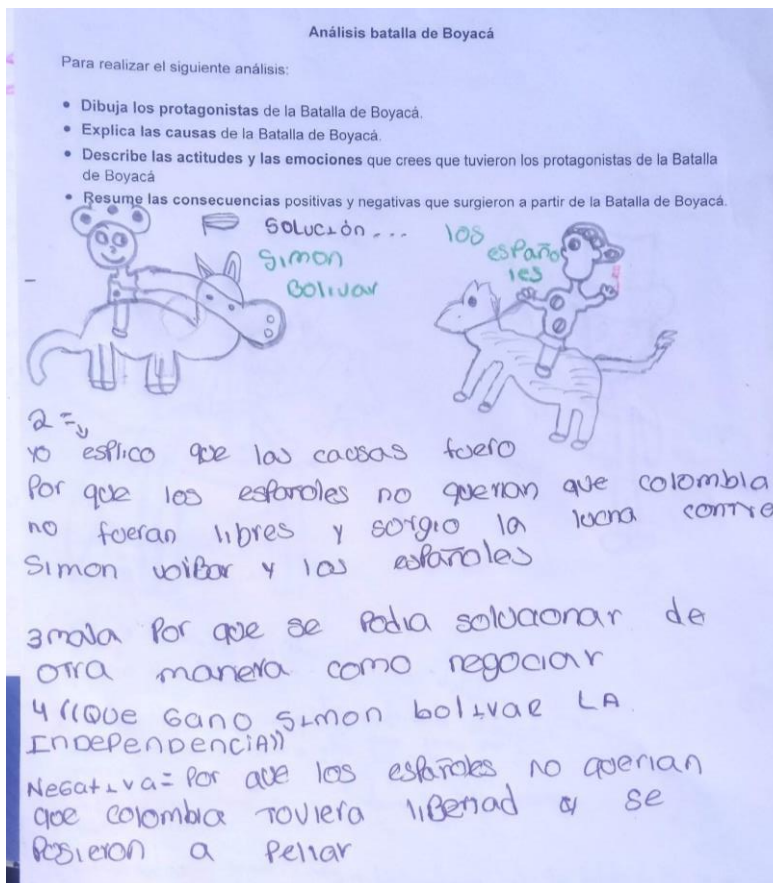 Análisis batalla de Boyacá
Para realizar el siguiente análisis:
• Dibuja los protagonistas de la Batalla de Boyacá.
• Explica las causas de la Batalla de Boyacá.
• Describe las actitudes y las emociones que crees que tuvieron los protagonistas de la Batalla
de Boyacá
• Resume las consecuencias positivas y negativas que surgieron a partir de la Batalla de Boyacá.
Solución...
Simon
Bolivar
los
españo
les
2 =
yo esplico que las caosas fuero
Por que los españoles no querian que colombia
no fueran libres y sorgio la lucha contre
Simon voibar y los españoles
3 mala Por que se Podia soluaonar de
otra manera como negociar
4 ((Que Gano Simon bolivae LA
INDEPENDENCIA))
Negativa = Por que los españoles no querian
que colombia Toviera liBertad y se
Posieron a Peliar